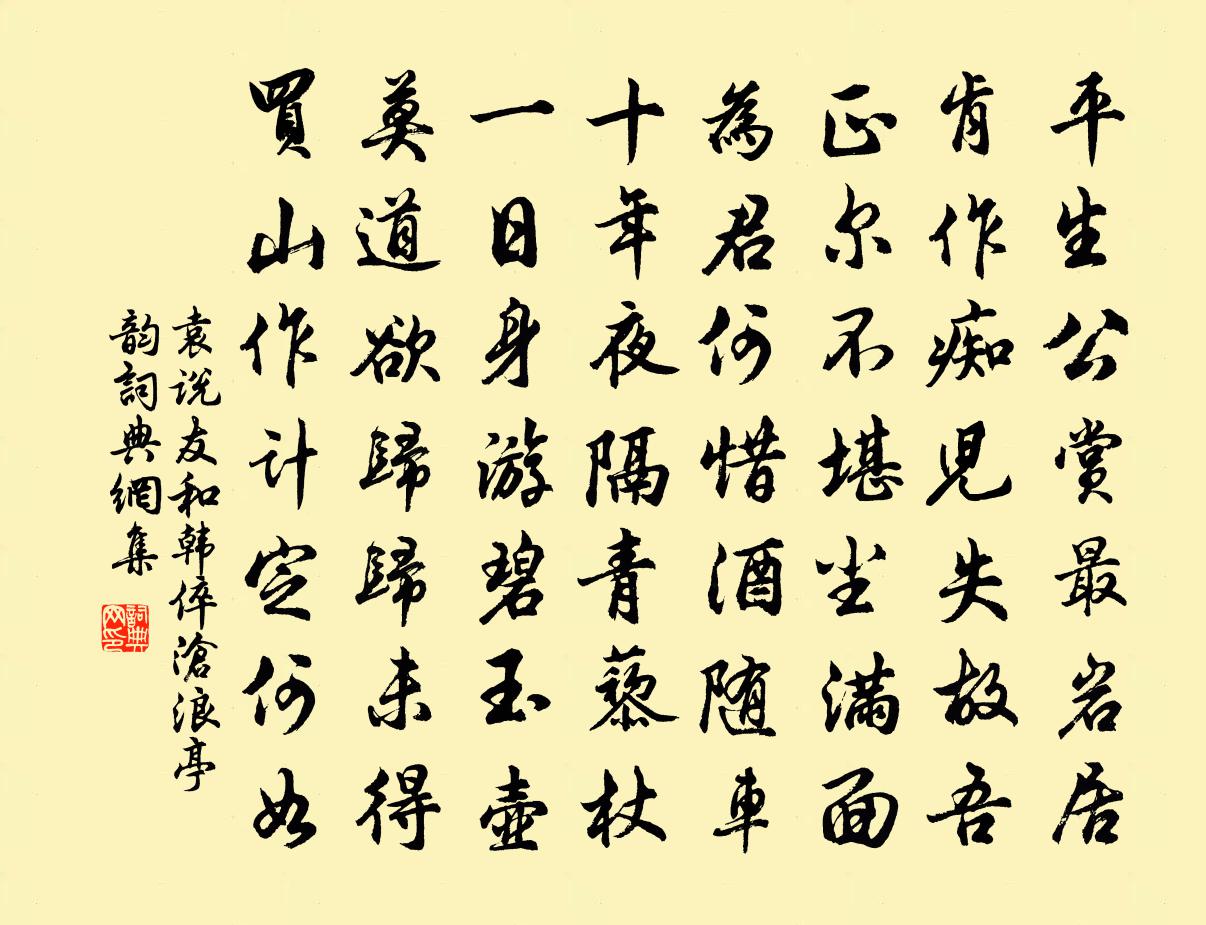 平生公賞最岩居
肯作痴児失故吾
正尔不堪尘满面
為君何惜酒随車
十年夜隔青藜杖
一日身游碧玉壺
莫道欲歸歸未得
買山作計定何如
袁说友和韩倅滄浪亭
韵詞典網集
詞典网印